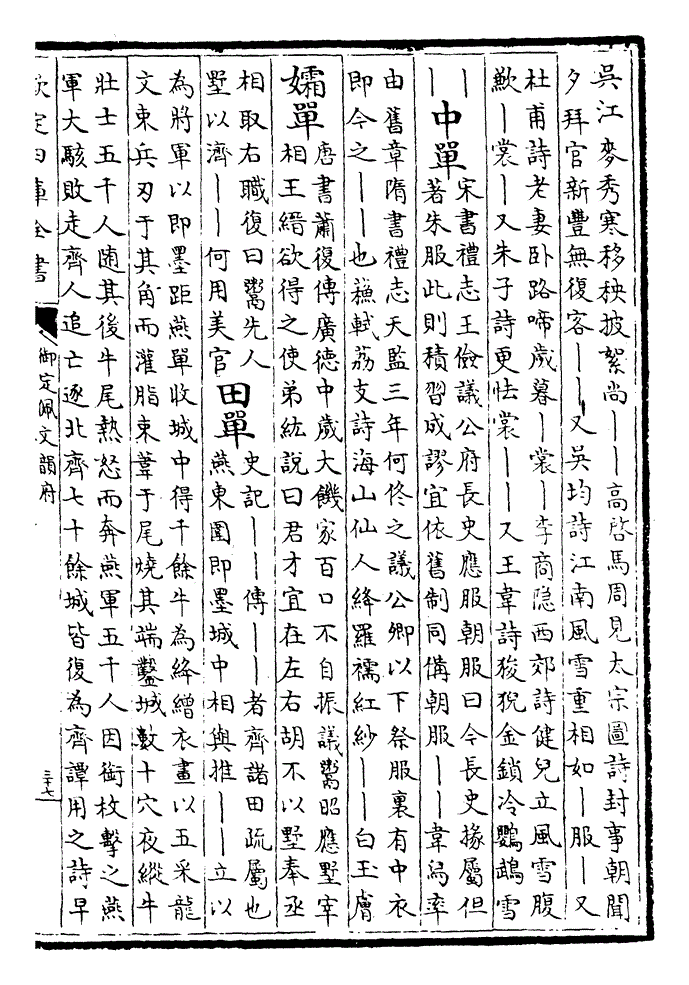 吳江麥秀寒移秧披絮尚｜｜高啓馬周見太宗圖詩封事朝聞
夕拜官新豐無復客｜｜又吳均詩江南風雪重相如｜服｜又
杜甫詩老妻卧路啼歲暮｜裳｜李商隐西郊詩健兒立風雪腹
歉｜裳｜又朱子詩更怯裳｜｜又王韋詩狻猊金鎖冷鸚鵡雪
｜
中單
宋書禮志王儉議公府長史應服朝服曰今長史掾屬但
著朱服此則積習成謬宜依舊制同備朝服｜｜韋舄率
由舊章隋書禮志天監三年何佟之議公卿以下祭服裏有中衣
即今之｜｜也蘓軾荔支詩海山仙人絳羅襦紅紗｜｜白玉膚
孀單
唐書蕭復傳廣德中歲大饑家百口不自振議鬻昭應墅宰
相王縉欲得之使弟紘説曰君才宜在左右胡不以墅奉丞
相取右職復曰鬻先人
墅以濟｜｜何用美官
田單
史記｜｜傳｜｜者齊諸田疏屬也
燕東圍即墨城中相與推｜｜立以
為將軍以即墨距燕單收城中得千餘牛為絳繒衣畫以五采龍
文束兵刃于其角而灌脂束葦于尾燒其端鑿城數十穴夜縱牛
壯士五千人随其後牛尾熱怒而奔燕軍五千人因銜枚擊之燕
軍大駭敗走齊人追亡逐北齊七十餘城皆復為齊譚用之詩早
欽定四庫全書
御定佩文韻府
三十七